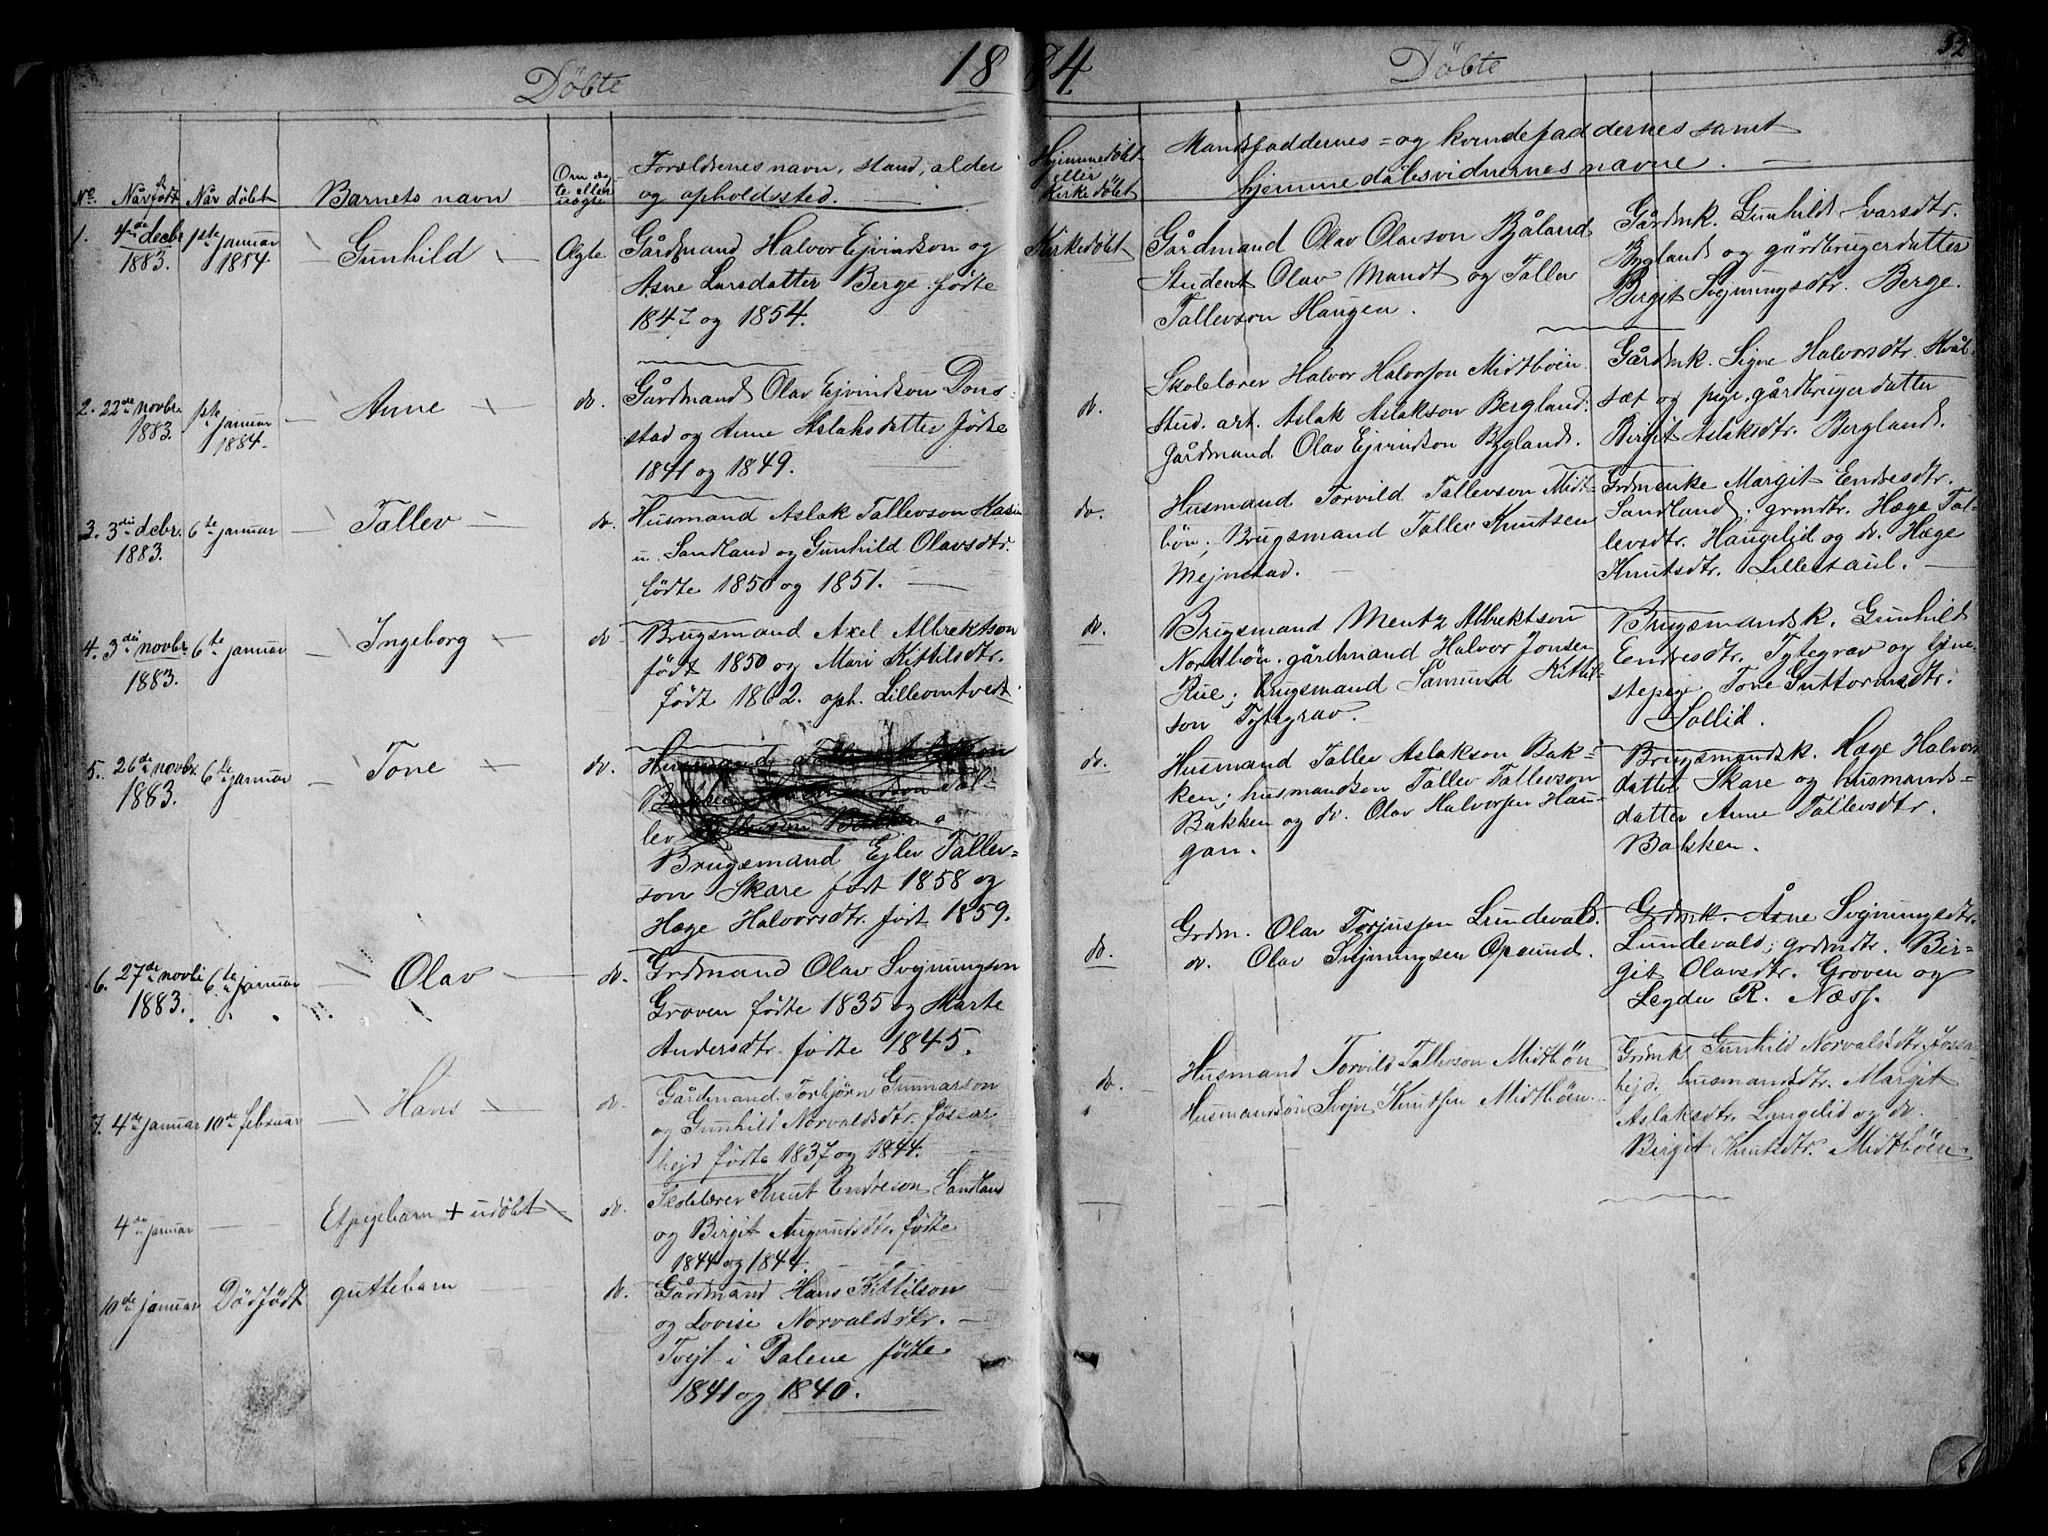 1884.
52
Döbte
Döbte
No.
Når født
Når döbt
Barnets navn
Om æg-
te eller
uægte
Forældrenes navn, stand, alder
og opholdssted.
Hjemmedöbt
eller
Kirkedöbt
Mandsfaddernes- og kvindefaddernes samt
hjemmedåbsvidnernes navne.
1.
4de decbr
1883.
1ste januar
1884.
Gunhild
Ægte
Gårdmand Halvor Ejvindson og
Asne Larsdatter Berge fødte
1847 og 1854.
Kirkedöbt
Gårdmand Olav Olavson Bjåland
Student Olav Mandt og Tallev
Tallevson Haugen.
Gårdmk. Gunhild Evarsdtr.
Bygland og gårdbrugerdatter
Birgit Svejnungsdtr. Berge.
2.
22de novbr.
1883.
1ste januar
1884.
Anne
do.
Gårdmand Olav Ejvindson Dons-
stad og Anne Aslaksdatter fødte
1841 og 1849.
do.
Skolelærer Halvor Halvorson Midtböen.
Stud. art. Aslak Aslakson Bergland.
Gårdmand Olav Ejvindson Bygland.
Gårdmk. Signe Halvorsdtr. Hvål-
sæt og pige, gårdbrugerdatter
Birgit Aslaksdtr. Bergland.
3.
3die decbr.
1883.
6te januar
Tallev
do.
Husmand Aslak Tallevson Hasin
u. Sandland og Gunhild Olavsdtr.
fødte 1850 og 1851.
do.
Husmand Torvild Tallevson Midt-
bön; Brugsmand Tallev Knutsen
Mejnstad.
Grdmenke Margit Endresdtr.
Sandland; grmdtr. Hæge Tal-
levsdtr. Haugelid og do. Hæge
Knutsdtr. Lillestaul.
4.
3die novbr
1883.
6te januar
Ingeborg
do
Brugsmand Axel Albrektson
født 1850 og Mari Kittilsdtr.
født 1862. oph. Lilleomtvedt.
do.
Brugsmand Mentz Albrektson
Nordbön, gårdmand Halvor Jonsen
Rue; brugsmand Samund Kittil-
son Tytegrav.
Brugsmandsk. Gunhild
Endresdtr. Tytegrav og tjene-
stepige Tone Guttormsdtr.
Sollid.
5.
26de novbr.
1883.
6te januar
Tone
do.
Husmand Tallev Aslakson
Bakken; husmandson Tal-
lev Tallevson Bakken
Brugsmand Ejlev Tallev-
son Skare født 1858 og
Hæge Halvorsdtr. født 1859.
do.
Husmand Tallev Aslakson Bak-
ken; husmandson Tallev Tallevson
Bakken og do. Olav Halvorsen Hau-
gan.
Brugsmandsk. Hæge Halvors
datter Skare og husmands-
datter Anne Tallevsdtr.
Bakken.
6.
27de novbr
1883.
6te januar
Olav
do.
Grdmand Olav Svejnungson
Groven fødte 1835 og Marte
Andersdtr. fødte 1845.
do.
Grdm. Olav Torjusjen Lundevald.
do. Olav Svejnungsen Opsund.
Grdmk. Åsne Svejnungsdtr.
Lundevald; grdmdtr. Bir-
git Olavsdtr. Groven og
Legder R. Næss.
7.
4de januar
10de februar
Hans
do.
Gårdmand Torbjörn Gunnarson
og Gunhild Norvaldsdtr. fossar-
hejd fødte 1837 og 1844.
do.
Husmand Torvild Tallevson Midtbön
Husmandsön Svejn Knutsen Midtböen.
Grdmk. Gunhild Norvaldsdtr. fossa-
hejd; husmandsdtr. Margit
Aslaksdtr. Langelid og do.
Birgit Knutsdtr. Midtböen.
4de januar
Et pigebarn + udöbt
do.
Skolelærer Knut Endreson Sandland
og Birgit Augundsdtr. fødte
1844 og 1844.
10de januar
Dödfödt
guttebarn
do.
Gårdmand Hans Kittilson
og Lovise Norvaldsdtr.
Tvejt i Dalene fødte
1841 og 1840.